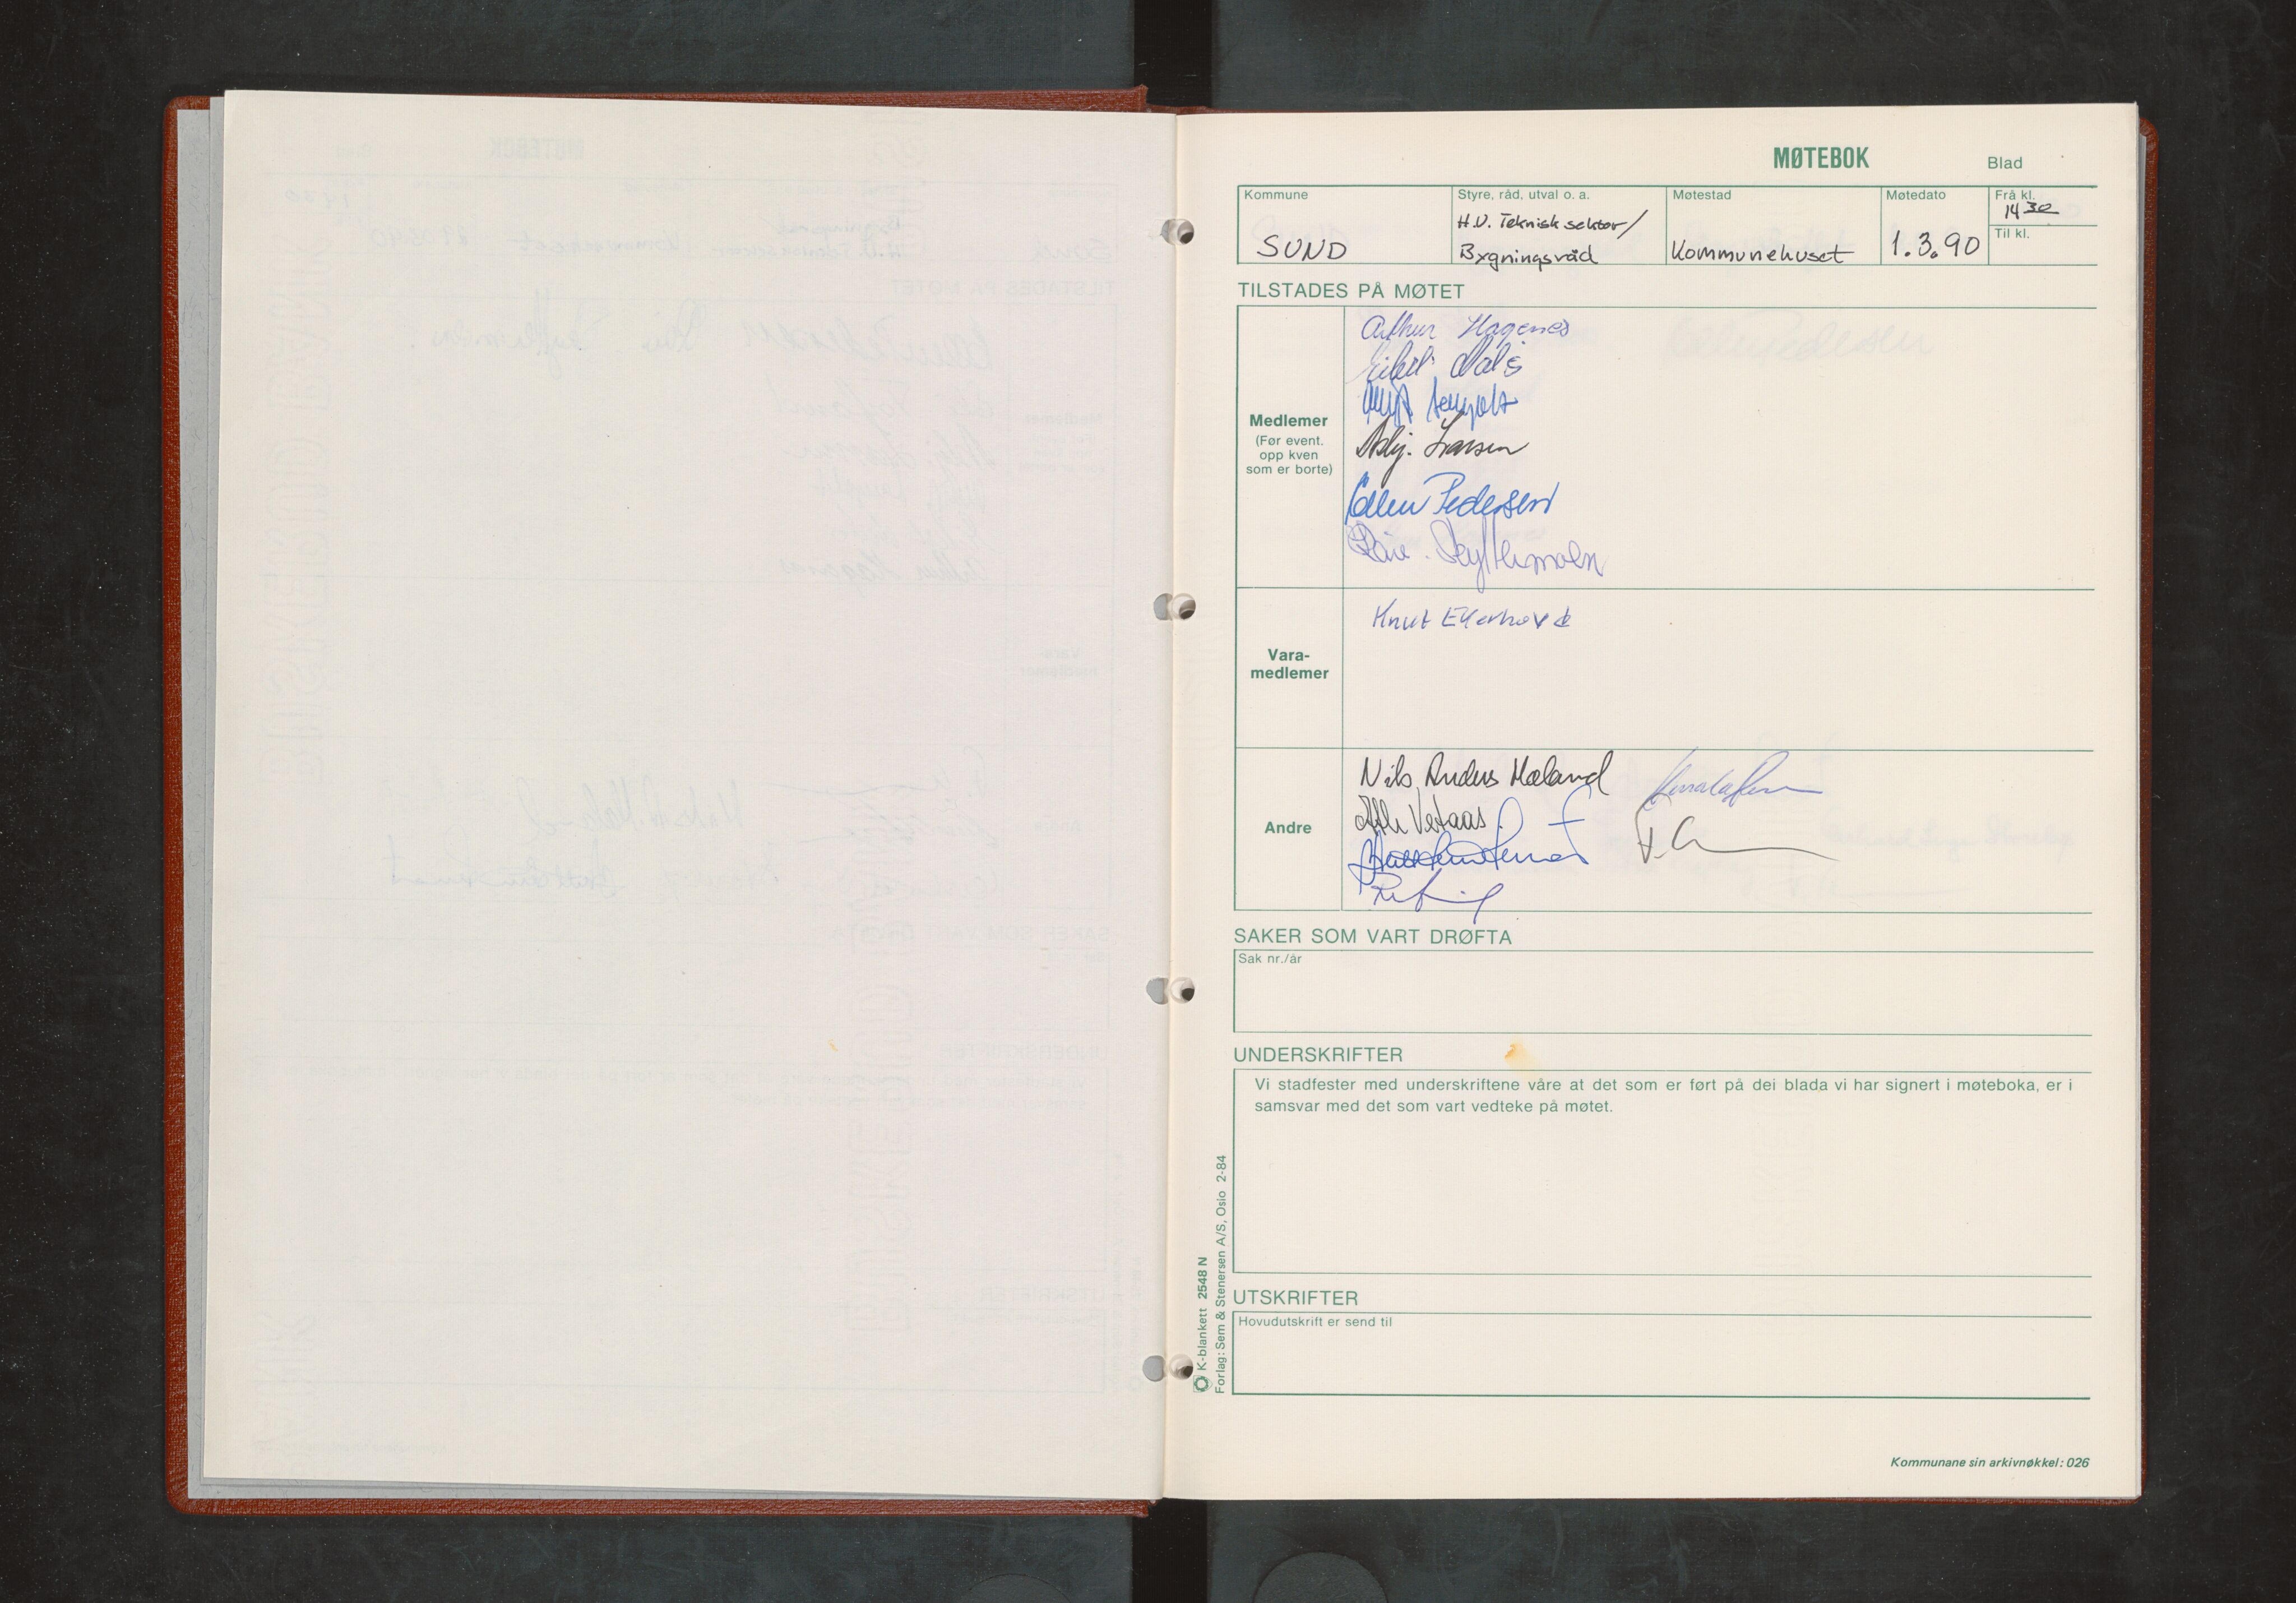 MØTEBOK
Blad
Kommune
SUND
Styre, råd, utval o. a.
H.U. Teknisk sektor/
Bygningsråd
Møtestad
Kommunehuset
Møtedato
1.3.90
Frå kl.
14 30
Til kl.
TILSTADES PÅ MØTET
Medlemer
(Før event.
opp kven
som er borte)
Arthur Hagenes
Larsen
Pedersen
Vara-
medlemer
Knut Ekerhovd
Andre
Nils Anders Mæland
Atle Vetaas
SAKER SOM VART DRØFTA
Sak nr./år
UNDERSKRIFTER
Vi stadfester med underskriftene våre at det som er ført på dei blada vi har signert i møteboka, er i
samsvar med det som vart vedteke på møtet.
UTSKRIFTER
Hovudutskrift er send til
K-blankett 2548 N
Forlag: Sem & Stenersen A/S, Oslo 2-84
Kommunane sin arkivnøkkel: 026